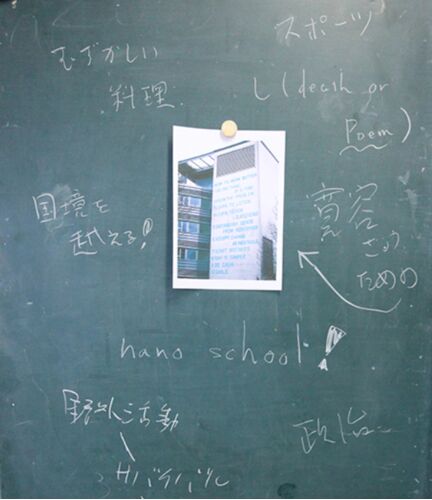 スポーツ
むずかしい
料理
し(death or
Poem)
HOW TO WORK BETTER
国境を
越える!
寛容
さの
ための
hano school!
野外活動
サバイバル
政治